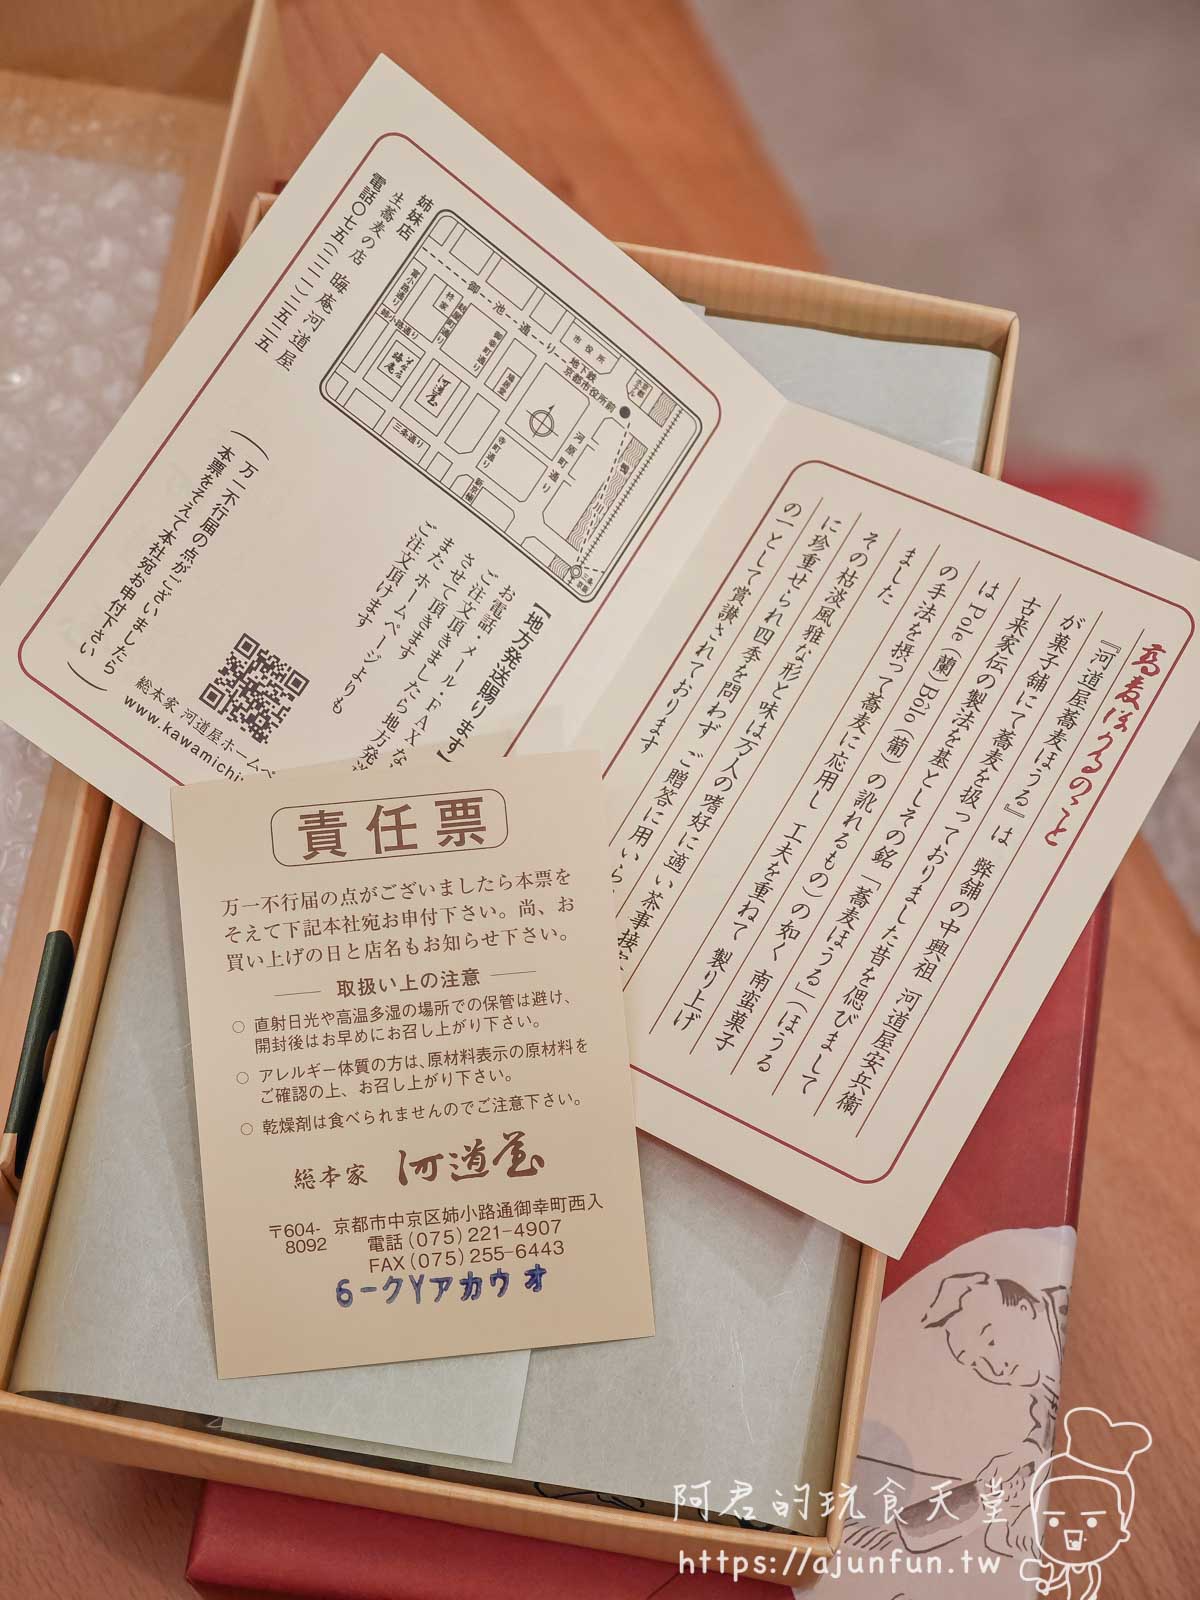 蕎麦ほうるのこと
『河道屋蕎麦ほうる』は 弊舗の中興祖 河道屋安兵衞
が菓子舗にて蕎麦を扱っておりました昔を偲びまして
古来家伝の製法を基としその銘「蕎麦ほうる」(ほうる
は Pole (蘭) Bôlo (葡) の訛れるもの)の如く 南蛮菓子
の手法を摂って蕎麦に応用し 工夫を重ねて 製り上げ
ました
その枯淡風雅な形と味は万人の嗜好に適い茶事接客
に珍重せられ四季を問わず ご贈答に用いら
の一として賞讃されております
【地方発送賜ります】
お電話・メール・FAXな
ご注文頂きましたら地方発送
させて頂きます
また ホームページよりも
ご注文頂けます
総本家 河道屋ホームペ
www.kawamichi
姉妹店
生蕎麦の店 晦庵河道屋
電話〇七五(二二一)二五二五
(万一不行届の点がございましたら
本票をそえて本社宛お申付下さい)
御池通り
市役所
地下鉄
京都市役所前
富小路通り
柊家
麩屋町通り
御幸町通り
姉小路通り
晦庵
河道屋
寺町通り
河原町通り
三条通り
新京極
三条
京阪
責任票
万一不行届の点がございましたら本票を
そえて下記本社宛お申付下さい。尚、お
買い上げの日と店名もお知らせ下さい。
取扱い上の注意
○ 直射日光や高温多湿の場所での保管は避け、
開封後はお早めにお召し上がり下さい。
○ アレルギー体質の方は、原材料表示の原材料を
ご確認の上、お召し上がり下さい。
○ 乾燥剤は食べられませんのでご注意下さい。
総本家 河道屋
〒604-8092 京都市中京区姉小路通御幸町西入
電話 (075) 221-4907
FAX (075) 255-6443
6-クYアカウオ
阿君的玩食天堂
https://ajunfun.tw